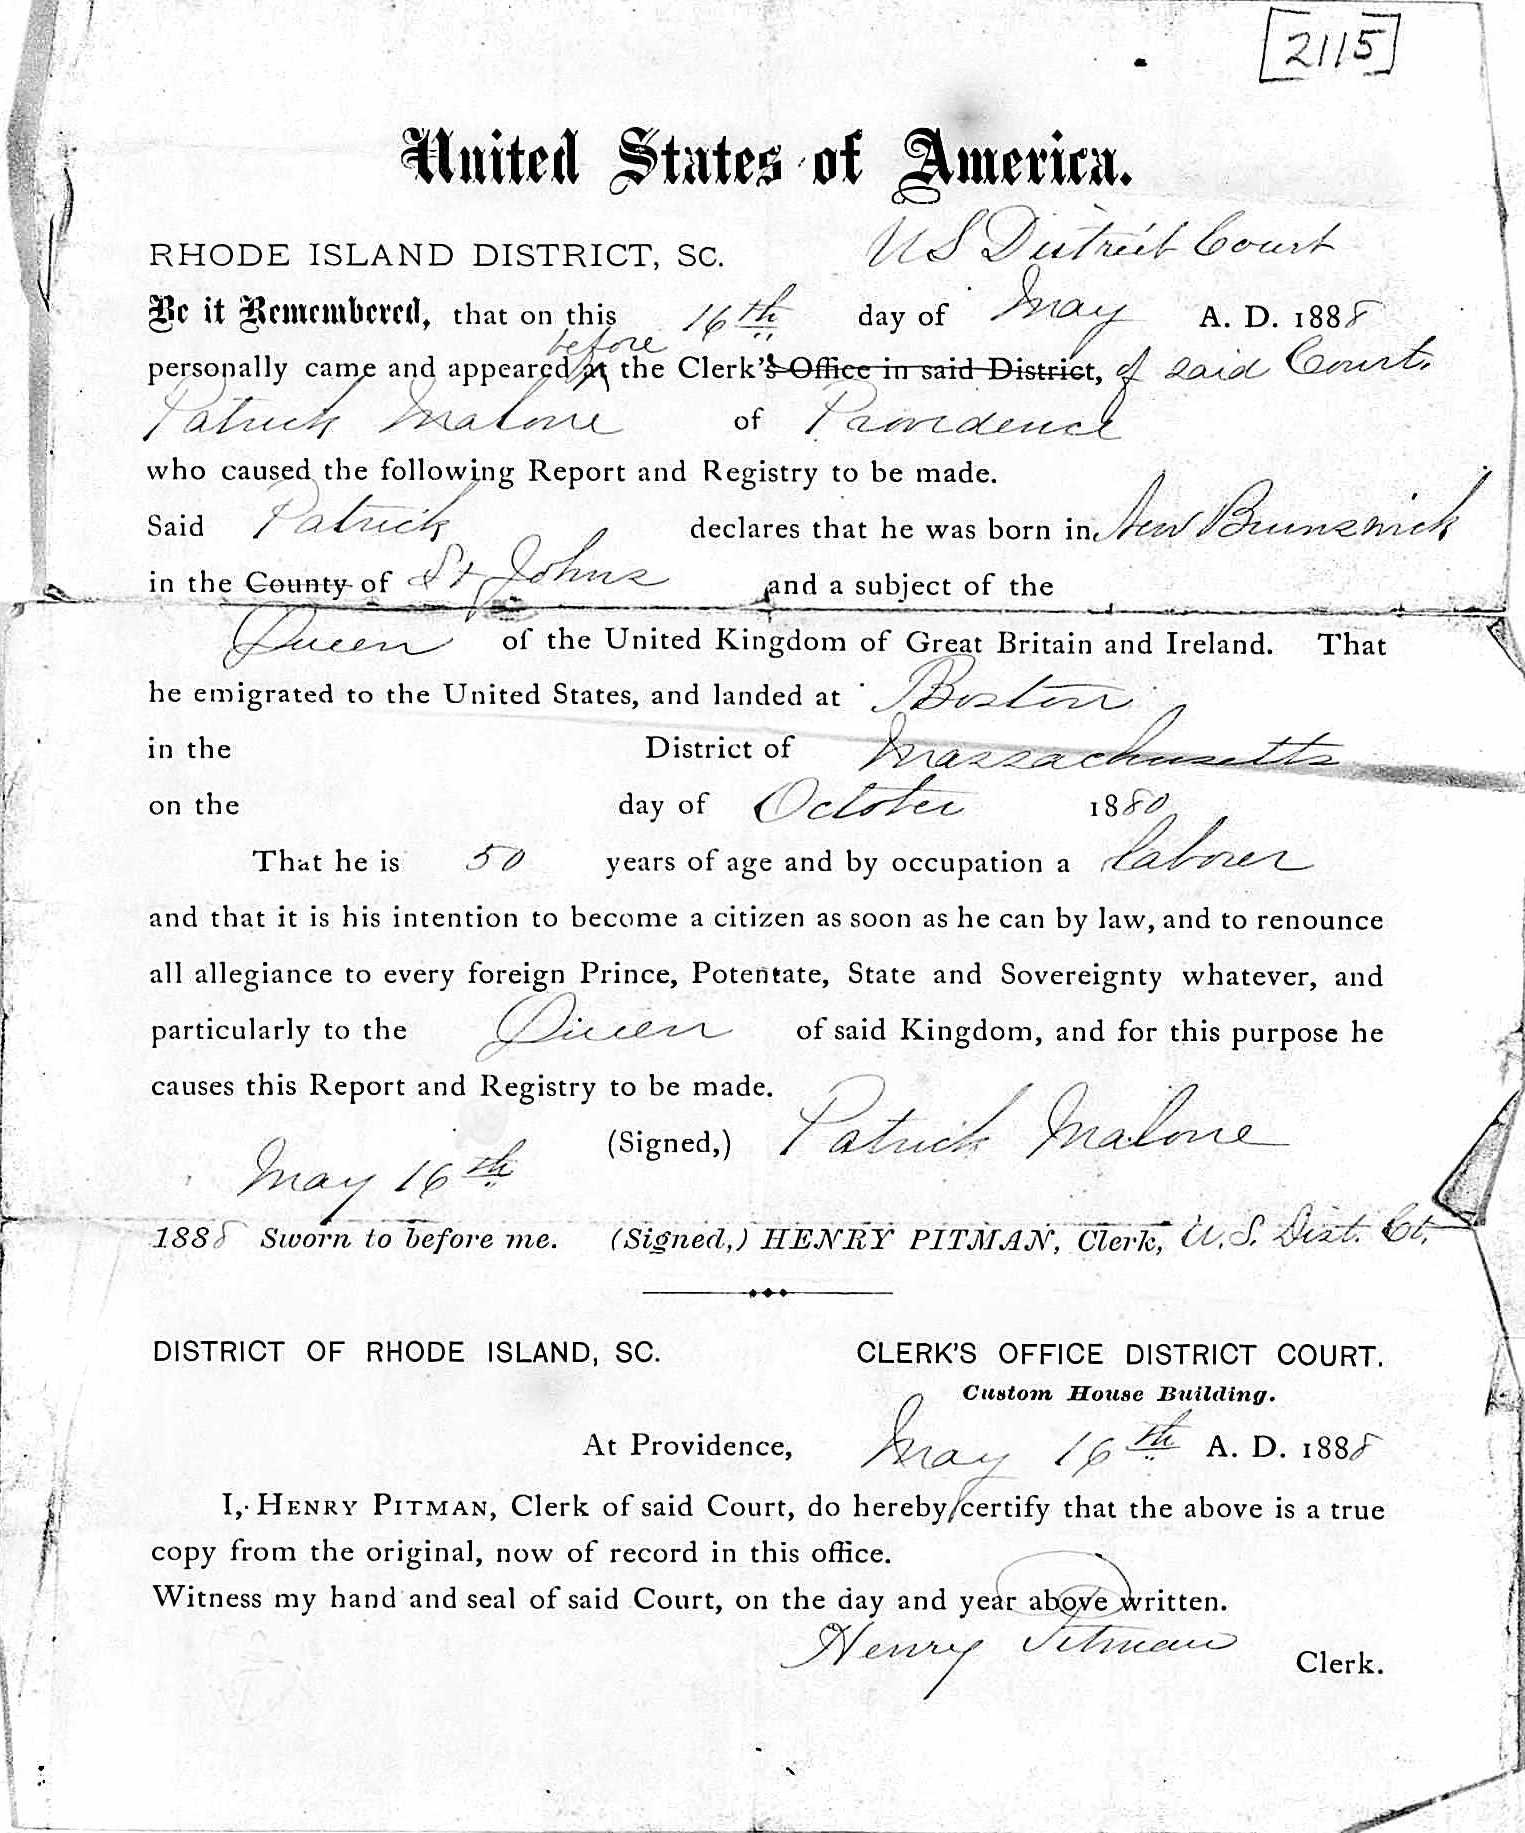 [2115]
United States of America.
RHODE ISLAND DISTRICT, SC. US District Court
Be it Remembered, that on this 16th day of May A. D. 1888
before
personally came and appeared at the Clerk's Office in said District, of said Court.
Patrick Malone of Providence
who caused the following Report and Registry to be made.
Said Patrick declares that he was born in New Brunswick
in the County of St Johns and a subject of the
Queen of the United Kingdom of Great Britain and Ireland. That
he emigrated to the United States, and landed at Boston
in the District of Massachusetts
on the day of October 1880
That he is 50 years of age and by occupation a laborer
and that it is his intention to become a citizen as soon as he can by law, and to renounce
all allegiance to every foreign Prince, Potentate, State and Sovereignty whatever, and
particularly to the Queen of said Kingdom, and for this purpose he
causes this Report and Registry to be made.
(Signed,) Patrick Malone
May 16th
1888 Sworn to before me. (Signed,) HENRY PITMAN, Clerk, U.S. Dist. Ct.
DISTRICT OF RHODE ISLAND, SC. CLERK'S OFFICE DISTRICT COURT.
Custom House Building.
At Providence, May 16th A. D. 1888
I, HENRY PITMAN, Clerk of said Court, do hereby certify that the above is a true
copy from the original, now of record in this office.
Witness my hand and seal of said Court, on the day and year above written.
Henry Pitman Clerk.